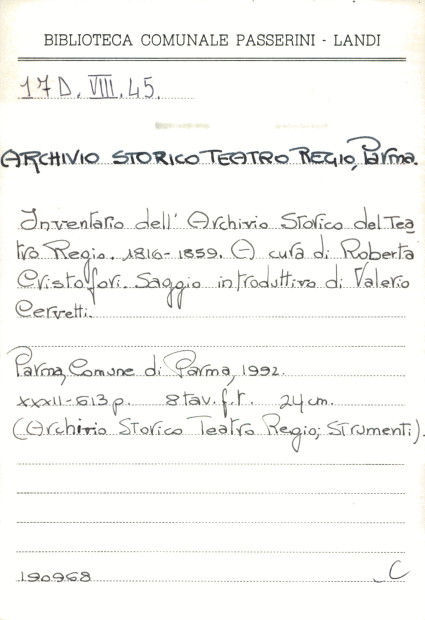 BIBLIOTECA COMUNALE PASSERINI - LANDI
17 D. VIII. 45.
ARCHIVIO STORICO TEATRO REGIO, Parma.
Inventario dell' Archivio Storico del Tea
tro Regio. 1816-1859. A cura di Roberta
Cristofori. Saggio introduttivo di Valerio
Cervetti.
Parma, Comune di Parma, 1992.
XXXII-613 p. 8 tav. f.t. 24 cm.
(Archivio Storico Teatro Regio; Strumenti).
190968
C